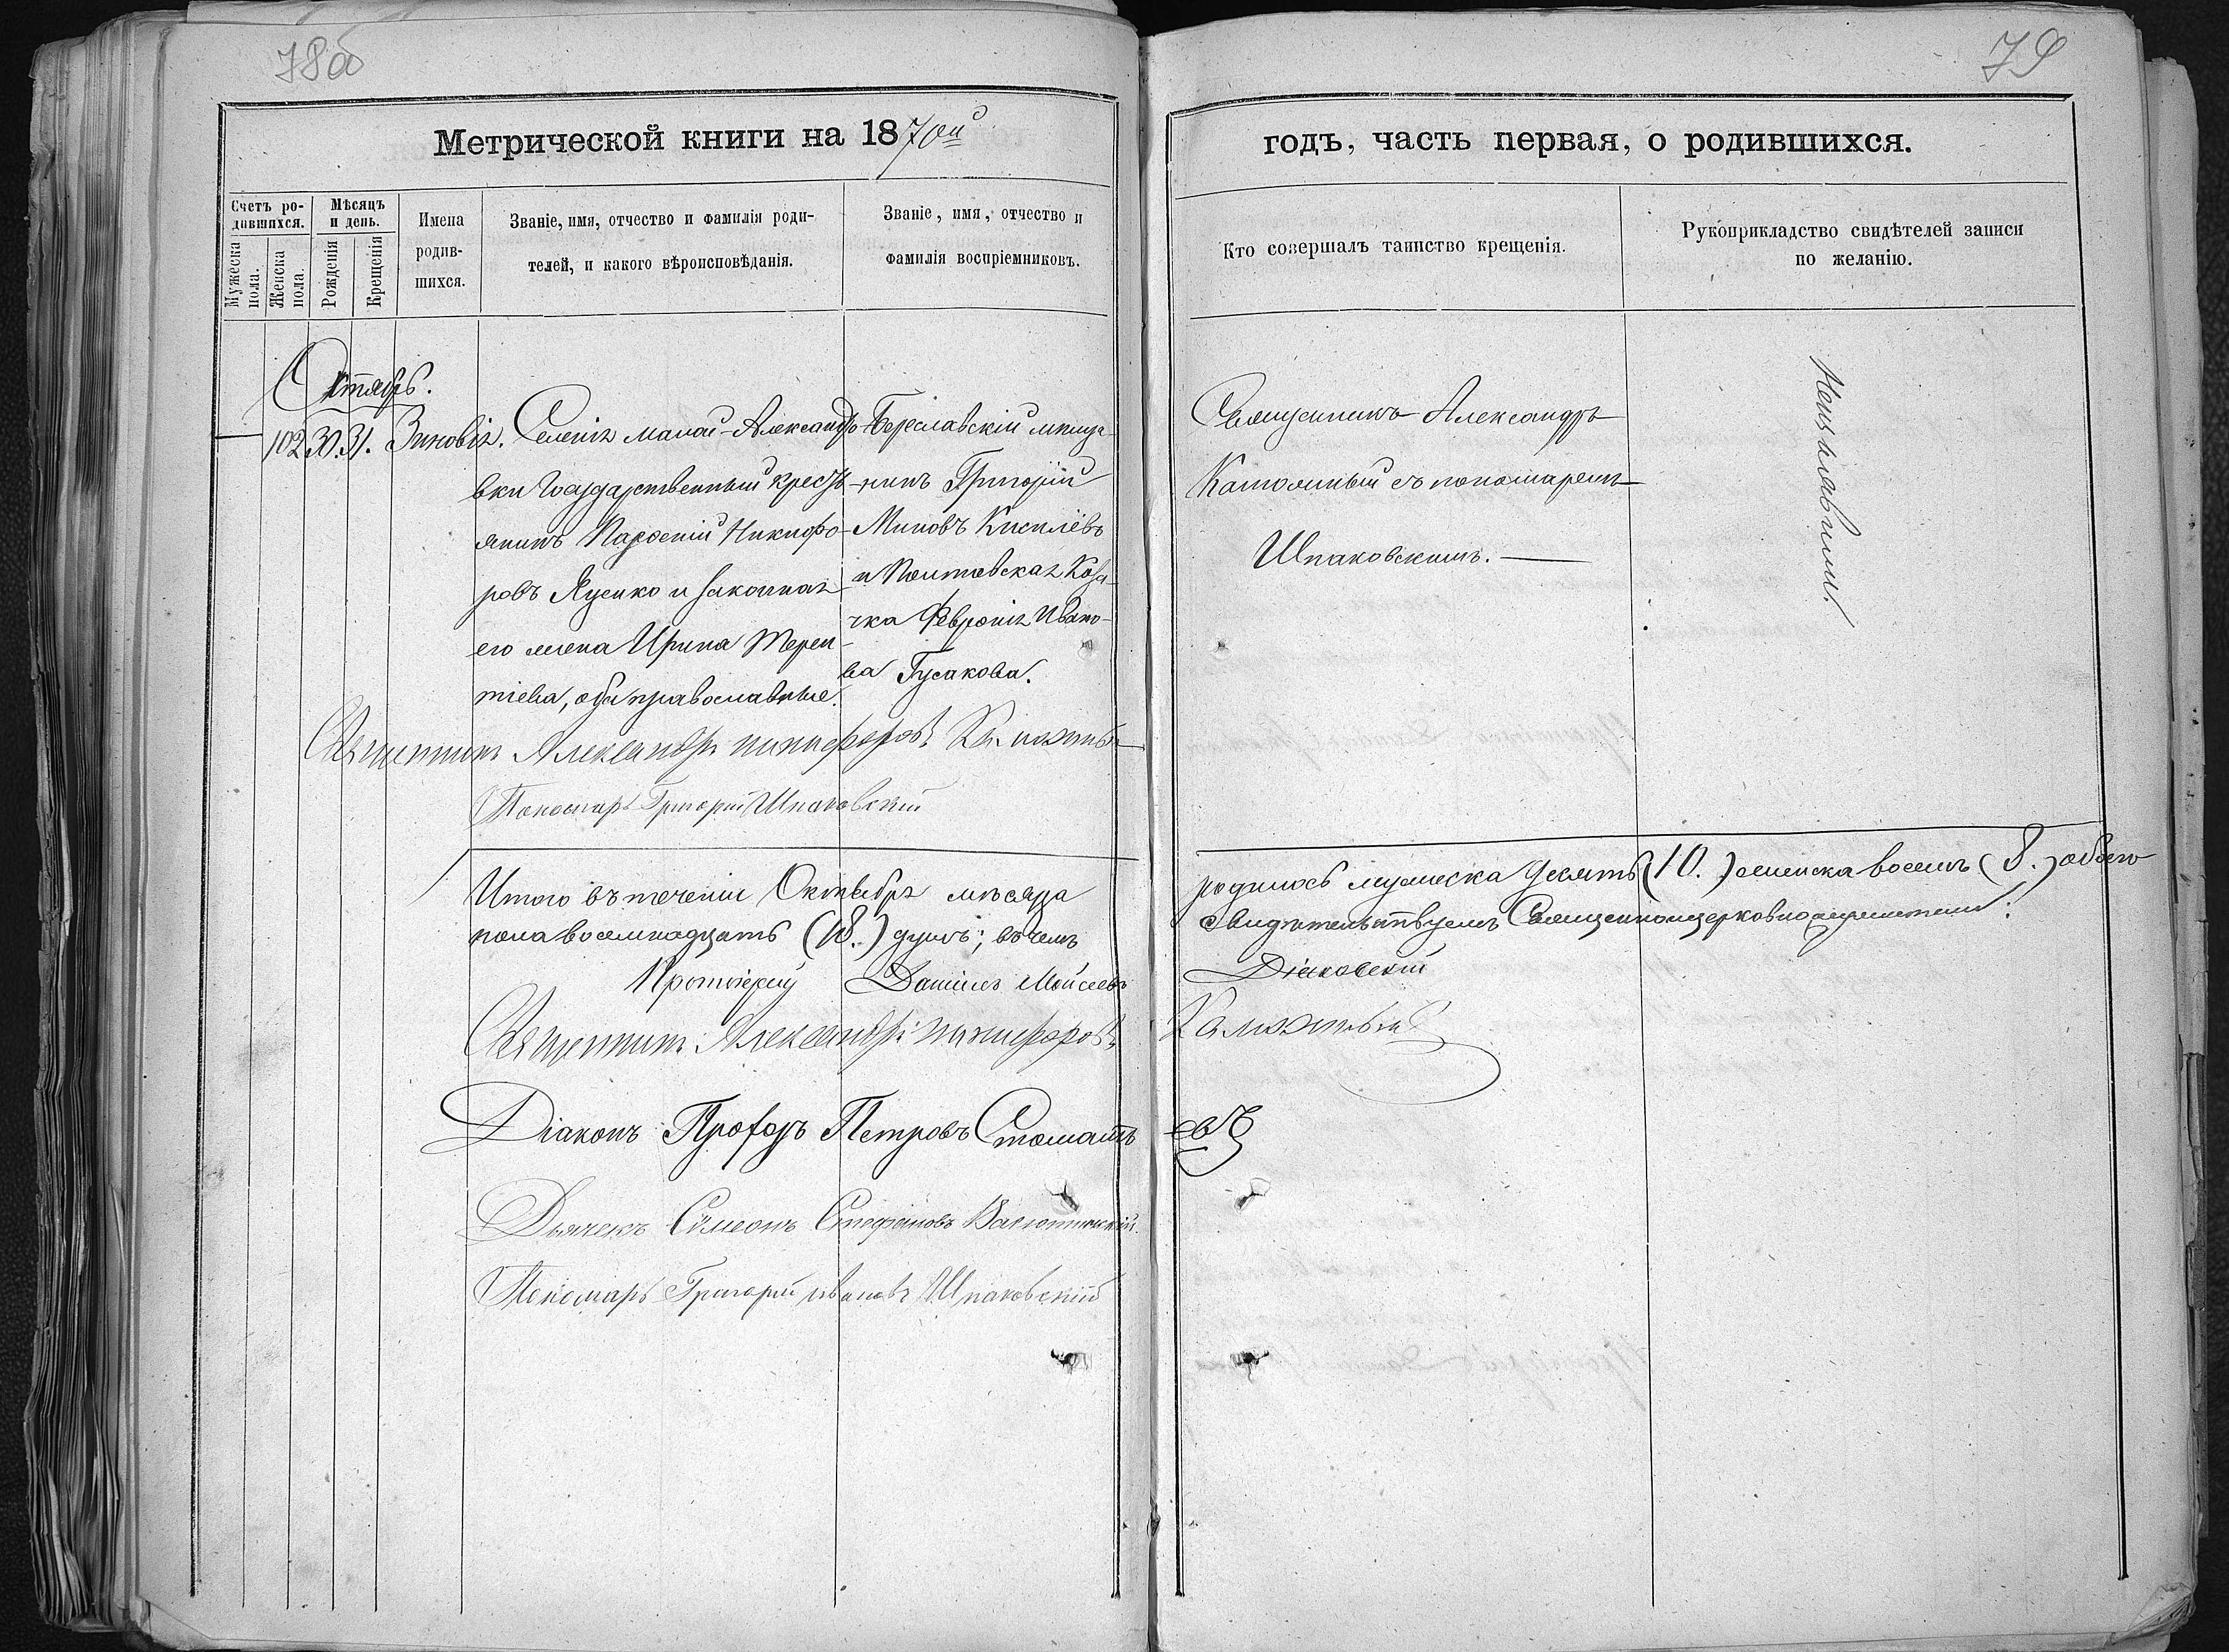 78об
79
Метрической книги на 1870ый
годъ, часть первая, о родившихся.
Счетъ родившихся.
Мужеска пола.
Женска пола.
Мѣсяцъ и день.
Рожденія
Крещенія
Имена родившихся.
Званіе, имя, отчество и фамилія родителей, и какого вѣроисповѣданія.
Званіе, имя, отчество и фамилія воспріемниковъ.
Кто совершалъ таинство крещенія.
Рукоприкладство свидѣтелей записи по желанію.
Октябрь.
102 30. 31. Зиновія.
Селенія малой-Александро-
вки Государственный кресть-
янинъ Никифо-
ровъ и законная
его жена Ирина Терен-
тіева, оба православные.
Бериславскій мѣща-
нинъ Григорій
Миновъ Киселёвъ
и Полтавская Коза-
чка Февронія Ивано-
ва Гусакова.
Священникъ Александръ
съ пономаремъ
Шпаковскимъ.
Священникъ Александръ Никифоровъ
Пономарь Григорій Шпаковскій
Итого въ теченіи Октября мѣсяца
родилось мужеска десять (10.) женска восемь (8.) обоего
пола восемнадцать (18.) душъ; въ чемъ
свидѣтельствуемъ
Протоіерей Даніилъ Моисеевъ
Діаковскій
Священникъ Александръ Никифоровъ
Діаконъ Прохоръ Петровъ Стомат
евъ
Дьячекъ Сѵмеонъ Стефановъ
Пономарь Григорій Ивановъ Шпаковскій